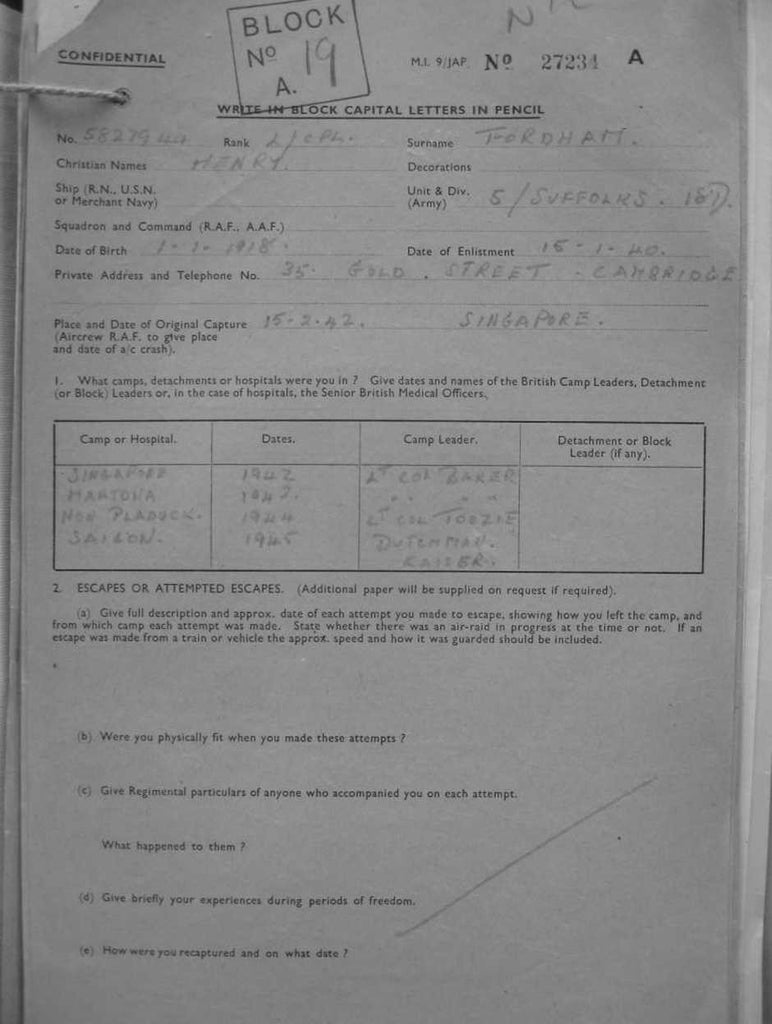 BLOCK
Nº 19
A.
CONFIDENTIAL
M.I. 9/JAP. Nº 27231 A
WRITE IN BLOCK CAPITAL LETTERS IN PENCIL
No. 5827944 Rank L/CPL. Surname FORDHAM.
Christian Names HENRY. Decorations
Ship (R.N., U.S.N. or Merchant Navy) Unit & Div. (Army) 5/SUFFOLKS. 18D.
Squadron and Command (R.A.F., A.A.F.)
Date of Birth 1-1-1918. Date of Enlistment 15-1-40.
Private Address and Telephone No. 35. GOLD. STREET. CAMBRIDGE
Place and Date of Original Capture 15-2-42. SINGAPORE.
(Aircrew R.A.F. to give place
and date of a/c crash).
1. What camps, detachments or hospitals were you in ? Give dates and names of the British Camp Leaders, Detachment
(or Block) Leaders or, in the case of hospitals, the Senior British Medical Officers.
Camp or Hospital. Dates. Camp Leader. Detachment or Block Leader (if any).
SINGAPORE 1942 LT COL BAKER
" " "
NON PLADUCK. 1944 LT COL TOOZIE
1945 DUTCHMAN.
KAISER.
2. ESCAPES OR ATTEMPTED ESCAPES. (Additional paper will be supplied on request if required).
(a) Give full description and approx. date of each attempt you made to escape, showing how you left the camp, and
from which camp each attempt was made. State whether there was an air-raid in progress at the time or not. If an
escape was made from a train or vehicle the approx. speed and how it was guarded should be included.
(b) Were you physically fit when you made these attempts ?
(c) Give Regimental particulars of anyone who accompanied you on each attempt.
What happened to them ?
(d) Give briefly your experiences during periods of freedom.
(e) How were you recaptured and on what date ?